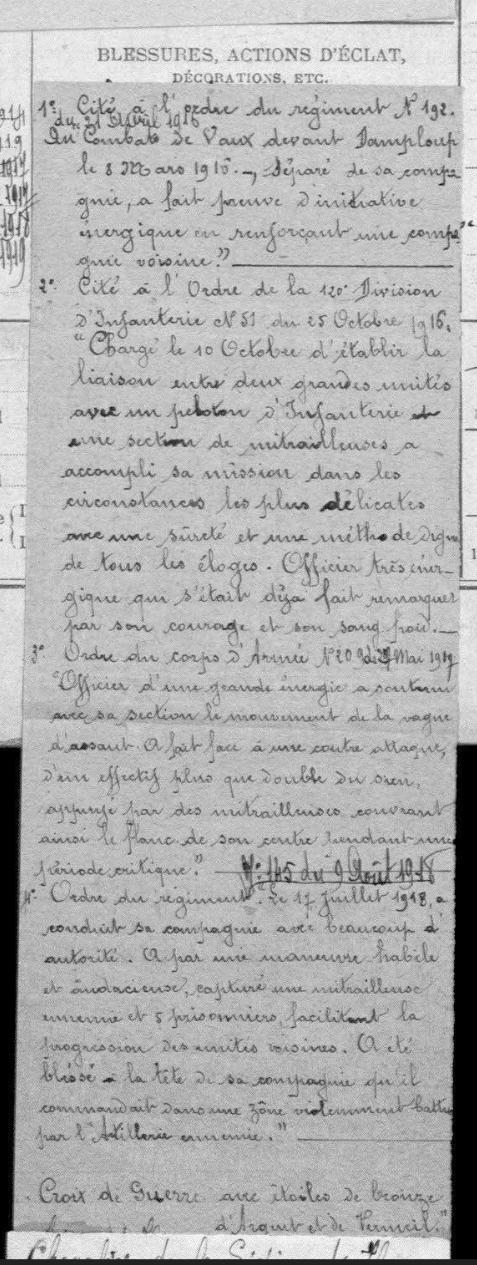 BLESSURES, ACTIONS D'ÉCLAT,
DÉCORATIONS, ETC.
1º Cité à l'ordre du régiment Nº 192.
du 21 Avril 1916
Au Combat de Vaux devant Damploup
le 8 Mars 1916. -, séparé de sa compa
gnie, a fait preuve d'initiative
énergique en renforçant une compa
gnie voisine."
2º Cité à l'Ordre de la 120e Division
d'Infanterie Nº 51 du 25 Octobre 1916.
"Chargé le 10 Octobre d'établir la
liaison entre deux grandes unités
avec un peloton d'Infanterie et
une section de mitrailleuses a
accompli sa mission dans les
circonstances les plus délicates
avec une sûreté et une méthode digne
de tous les éloges. Officier très éner-
gique qui s'était déja fait remarquer
par son courage et son sang froid.
3º Ordre du corps d'Armée Nº 209 Mai 1917
"Officier d'une grande énergie a soutenu
avec sa section le mouvement de la vague
d'assaut. A fait face à une contre attaque,
d'un effectif plus que double du sien,
appuyé par des mitrailleuses couvrant
ainsi le flanc de son centre pendant une
période critique."
Nº 145 du 9 Août 1918
4º Ordre du régiment. Le 17 Juillet 1918, a
conduit sa compagnie avec beaucoup d'
autorité. A par une manœuvre habile
et audacieuse, capturé une mitrailleuse
ennemie et 5 prisonniers, facilitant la
progression des unités voisines. A été
bléssé à la tête de sa compagnie qu'il
commandait dans une zône violemment battue
par l'Artillerie ennemie."
Croix de Guerre avec étoiles de bronze
d'Argent et de Vermeil."